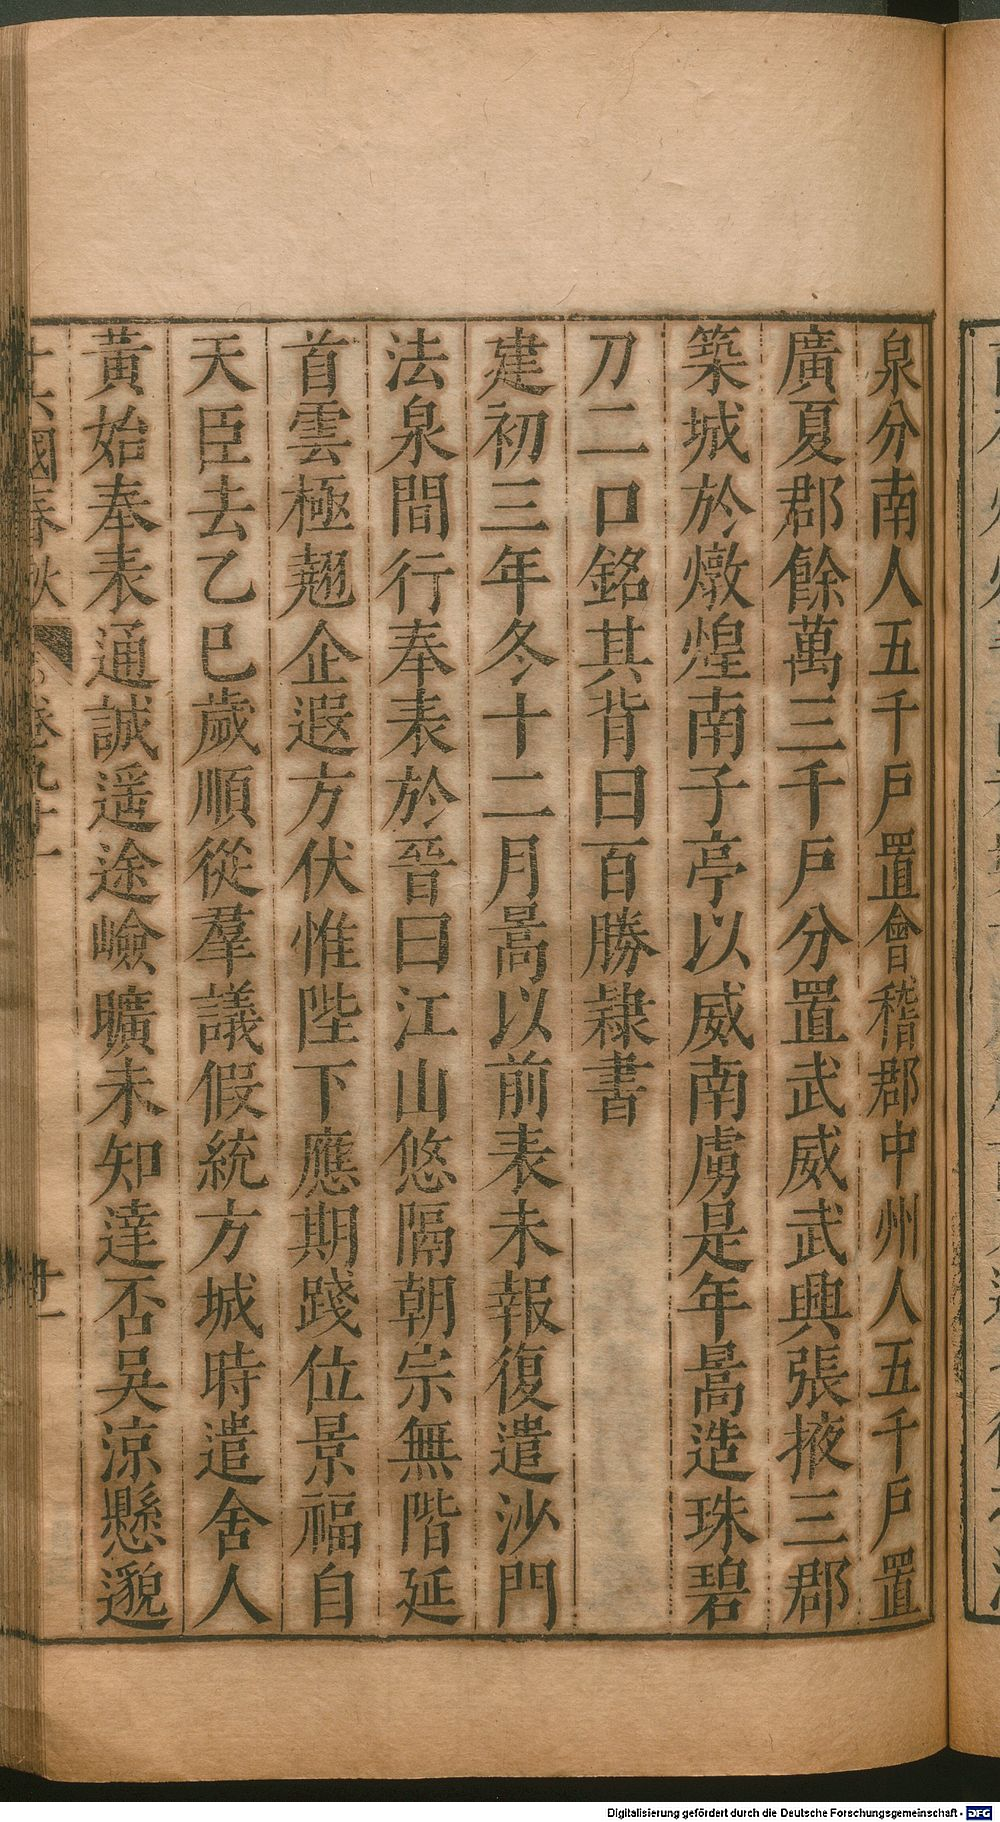 泉分南人五千戸置會稽郡中州人五千戸置
廣夏郡餘萬三千戸分置武威武興張掖三郡
築城於燉煌南子亭以威南虜是年暠造珠碧
刀二口銘其背曰百勝隷書
建初三年冬十二月暠以前表未報復遣沙門
法泉間行奉表於晉曰江山悠隔朝宗無階延
首雲極翹企遐方伏惟陛下應期踐位景福自
天臣去乙巳歲順從羣議假統方城時遣舍人
黃始奉表通誠遥途嶮曠未知達否吳涼懸邈
十六國春秋 卷九十一 廿一
Digitalisierung gefördert durch die Deutsche Forschungsgemeinschaft - DFG